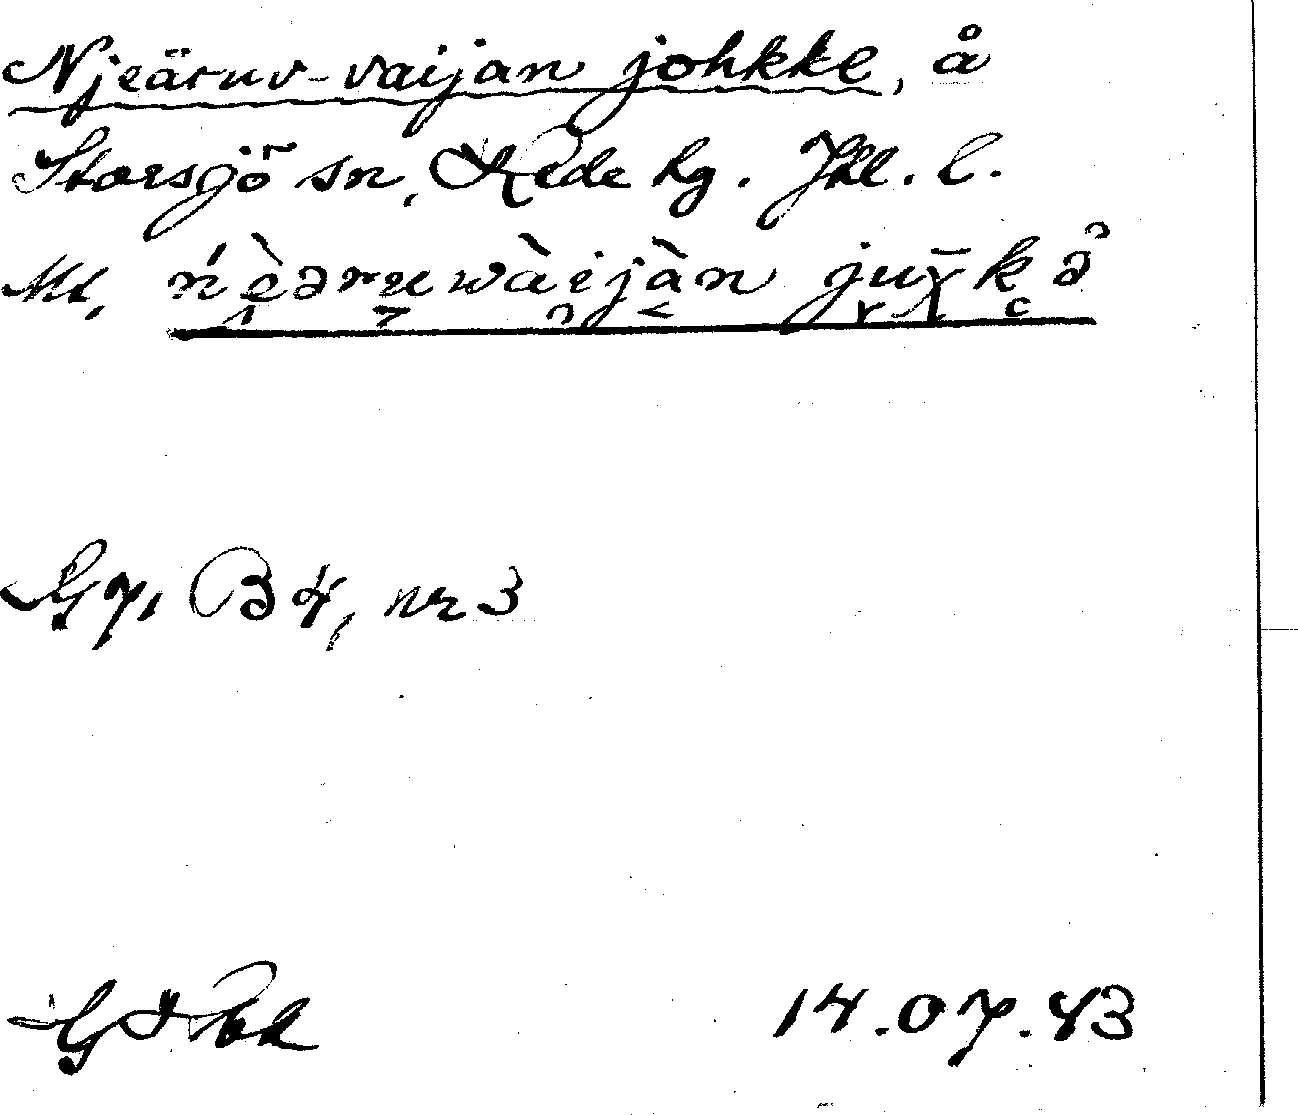 Njeäruv-vaijan johkke, å
Storsjö sn, Rede hg. Jtl. l.
Ml, ńèəruwàijàn juχ̄kə̂
G7, B4, nr 3
14.07.83